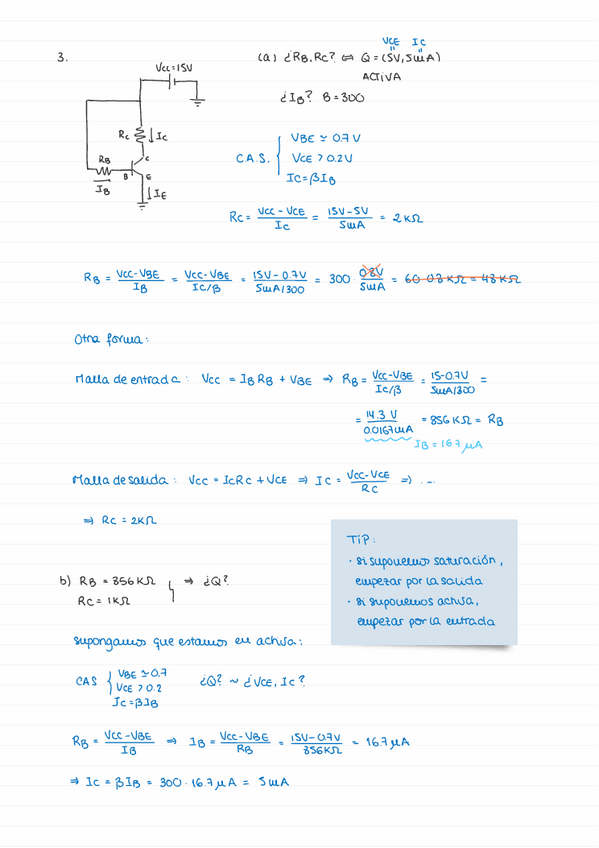 3.
(a) ¿RB, RC? ⇔ Q = (5V, 5mA)
VCE IC
ACTIVA
¿IB? B = 300
VCC = 15V
RC ↓ IC
RB
C
B
E
IB
↓ IE
C.A.S. { VBE ≃ 0.7 V
VCE > 0.2 V
IC = βIB
RC = (VCC - VCE)/IC = (15V - 5V)/5mA = 2 KΩ
RB = (VCC - VBE)/IB = (VCC - VBE)/(IC/β) = (15V - 0.7V)/(5mA/300) = 300 0.8V/5mA = 60.03 KΩ = 48 KΩ
Otra forma:
Malla de entrada: VCC = IB RB + VBE ⇒ RB = (VCC - VBE)/(IC/β) = (15 - 0.7V)/(5mA/300) =
= 14.3 V/0.0167mA = 856 KΩ = RB
IB = 16.7 μA
Malla de salida: VCC = ICRC + VCE ⇒ IC = (VCC - VCE)/RC ⇒ ...
⇒ RC = 2KΩ
TIP:
· si suponemos saturación,
empezar por la salida
· si suponemos activa,
empezar por la entrada
b) RB = 856 KΩ ⇒ ¿Q?
RC = 1KΩ
supongamos que estamos en activa:
CAS { VBE ≃ 0.7
VCE > 0.2
IC = βIB
¿Q? ~ ¿VCE, IC?
RB = (VCC - VBE)/IB ⇒ IB = (VCC - VBE)/RB = (15V - 0.7V)/856KΩ = 16.7 μA
⇒ IC = βIB = 300 · 16.7 μA = 5 mA